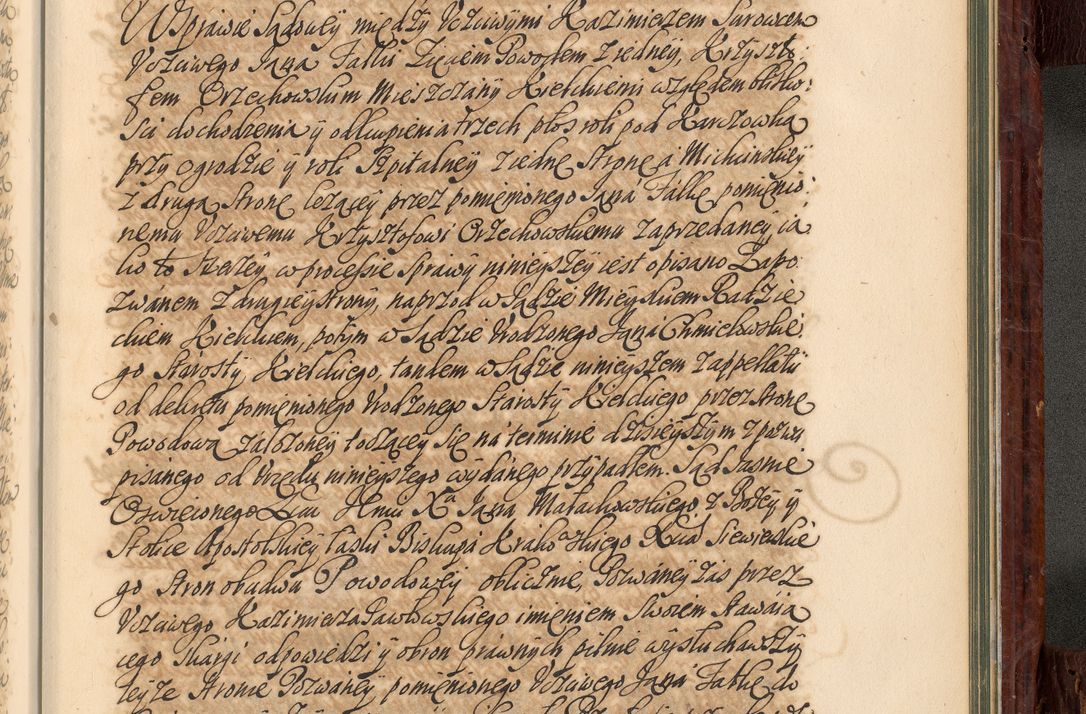 W Sprawie Sądowey między Uczciwymi Kazimierzem Surowcem
Uczciwego Jana Falki Zięciem Powodem z iedney, Krzyszto
fem Orzechowskim Mieszczany Kieleckiemi względem
ści dochodzenia y odkupienia trzech płos roli pod Karczowką
przy ogrodzie y roli Szpitalney z iedne Stronę a Michinskiey
z druga Stronę leżącey przez pomienionego Jana Falkę pomienio
nemu Uczciwemu Krzysztofowi Orzechowskiemu zaprzedaney ia
ko to szerzey w processie Sprawy ninieyszey iest opisano Zapo
zwanem z drugiey strony, naprzod w Sądzie Mieyskiem Radzie
ckiem Kieleckiem, potym w Sądzie Urodzonego Jana Chmielowskie
go Starosty Kieleckiego, tandem w Sądzie ninieyszem z appellaty
od dekretu pomienionego Urodzonego Starosty Kieleckiego przez Stronę
Powodową założoney toczącey się na terminie dzisieyszym z pozwu
pisanego od Urzędu ninieyszego wydanego przypadłem. Sąd Jasnie
Oswieconego Xa Jana Małachowskiego z Bożey y
Stolice Apostolskiey łaski Biskupa Krakowskiego Xcia Siewierskie
go Stron obudwu Powodowey oblicznie, Pozwaney zas przez
Uczciwego Kazimierza Pawłowskiego imieniem Swoiem stawaia
cego skargi odpowiedzi y obron prawnych pilnie wysłuchawszy
teyże Stronie Pozwaney pomienionego Uczciwego Jana Falkę do